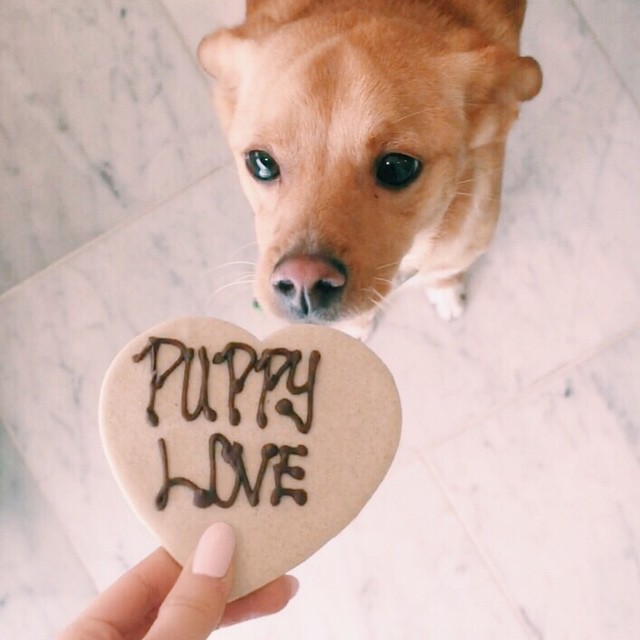 PUPPY
LOVE